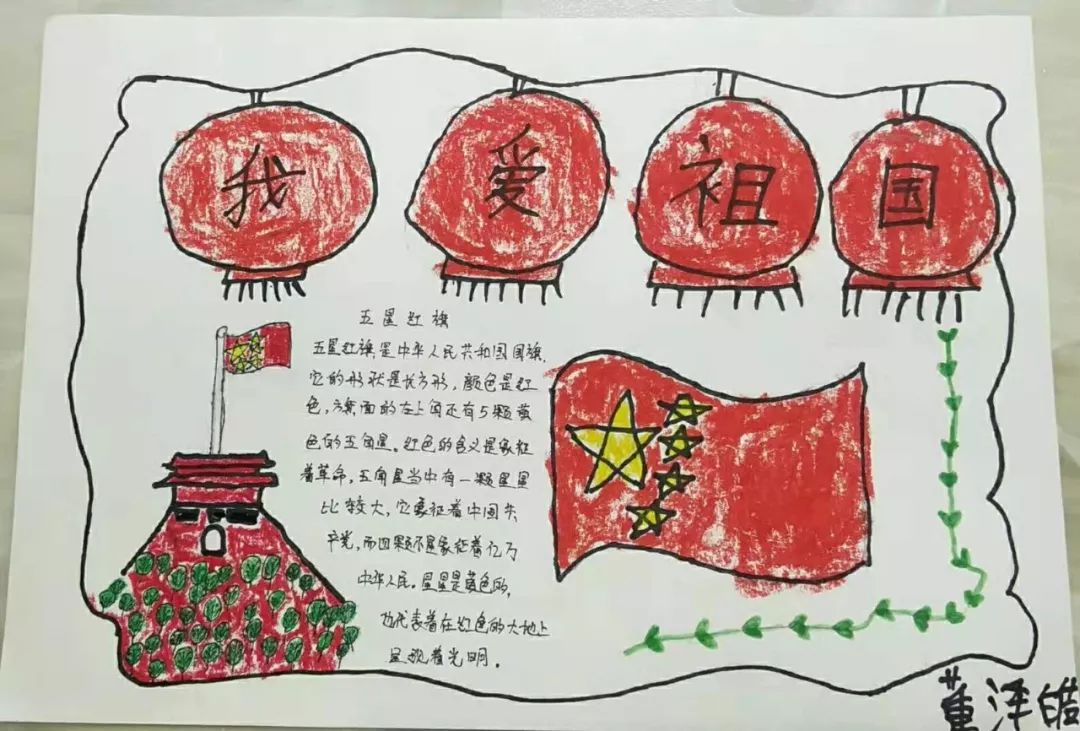 我 爱 祖 国
五星红旗
五星红旗,是中华人民共和国国旗,
它的形状是长方形,颜色是红
色,旗面的左上角还有5颗黄
色的五角星。红色的含义是象征
着革命,五角星当中有一颗星星
比较大,它象征着中国共
产党,而四颗小星象征着亿万
中华人民。星星是黄色的,
也代表着在红色的大地上
呈现着光明。
董泽皓